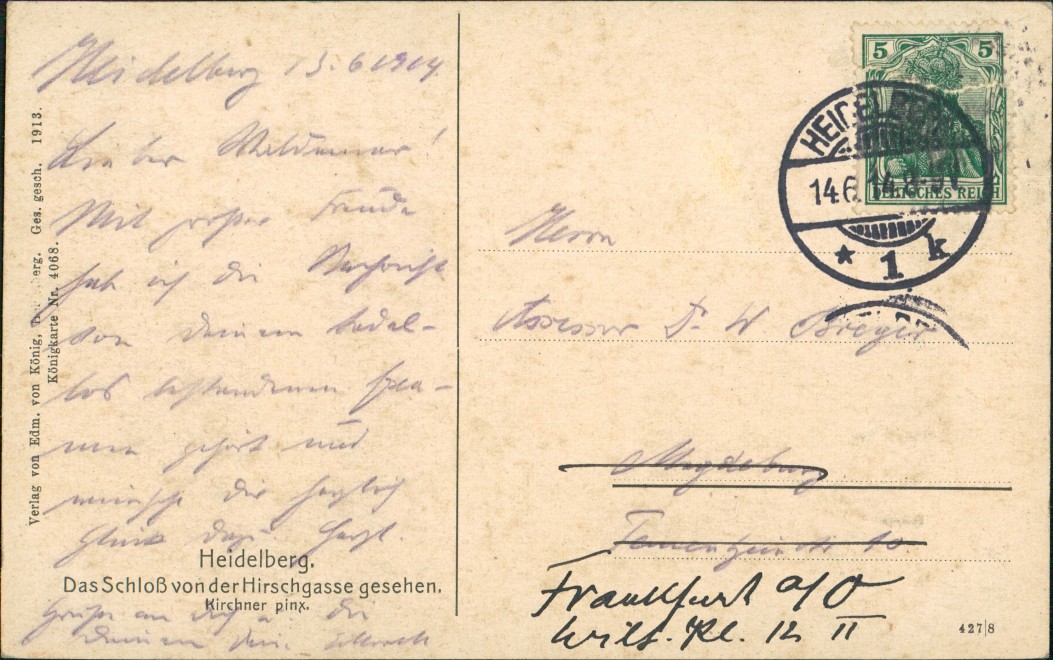 Heidelberg 13.6 1914.
Lieber Waldemar!
Mit großer Freude
hab ich die Nachricht
von deinem tadel-
los bestandenen Exa-
men gehört und
wünsche dir herzlich
Glück dazu. Herzl.
Grüße an dich u. die
deinen dein
Heidelberg.
Das Schloß von der Hirschgasse gesehen.
Kirchner pinx.
Verlag von Edm. von König, Ges. gesch. 1913.
Königkarte Nr. 4068.
5 5
DEUTSCHES REICH
HEIDELBERG
14.6.14
* 1 k
Herrn
Assessor Dr. W Breyer
Magdeburg
10
Frankfurt a/O
Wilh. Pl. 12 II
427|8